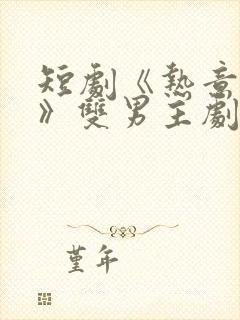 短劇《熱意
》雙男主劇
堇年